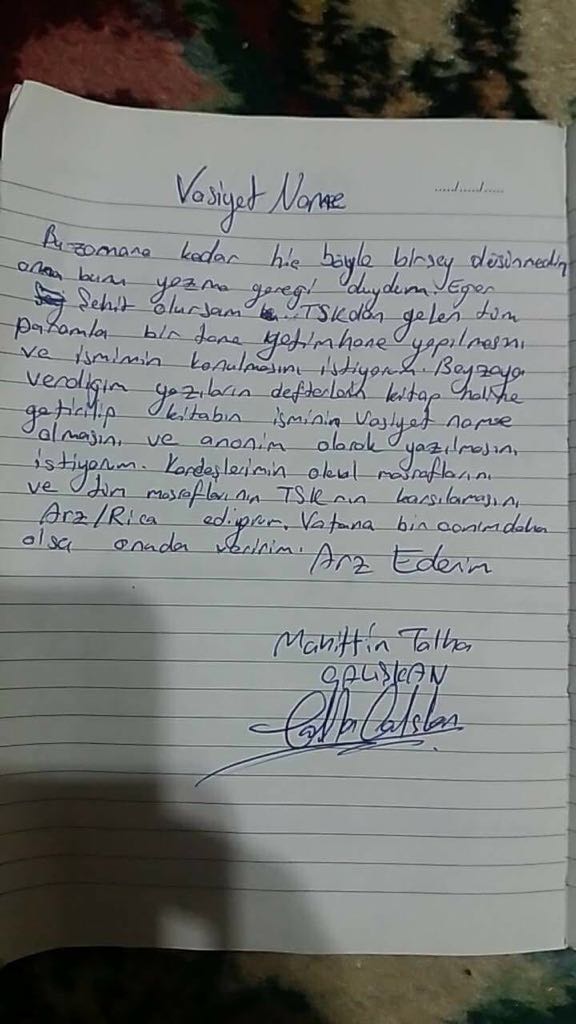 Vasiyet Name
...../...../.....
Bu zamana kadar hic böyle birsey düsünmedim
ama bunu yazma geregi duydum. Eger
Şehit olursam TSKdan gelen tüm
paramla bir tane yetimhane yapılmasını
ve ismimin konulmasını istiyorum. Beyzaya
verdiğim yazıların defterlerin kitap haline
getirilip kitabın isminin Vasiyet name
olmasını ve anonim olarak yazılmasını
istiyorum. Kardeşlerimin okul masraflarını
ve tüm masraflarının TSKnın karsılamasını
Arz/Rica ediyorum. Vatana bin canım daha
olsa onuda veririm. Arz Ederim
Mahittin Talha
ÇALIŞKAN